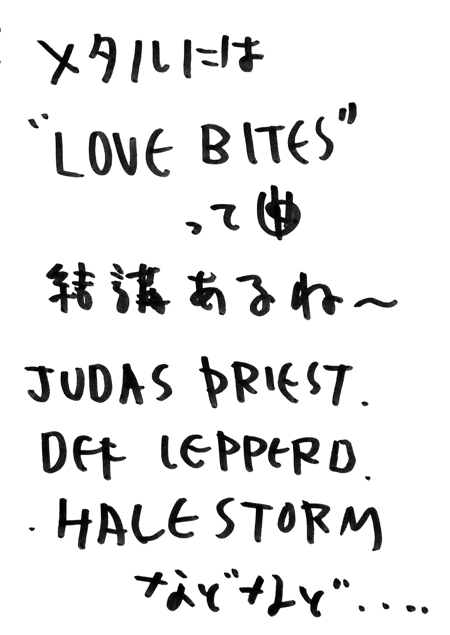 メタルには
"LOVE BITES"
って
結講あるね〜
JUDAS PRIEST.
DEF LEPPERD.
.HALESTORM
などなど....